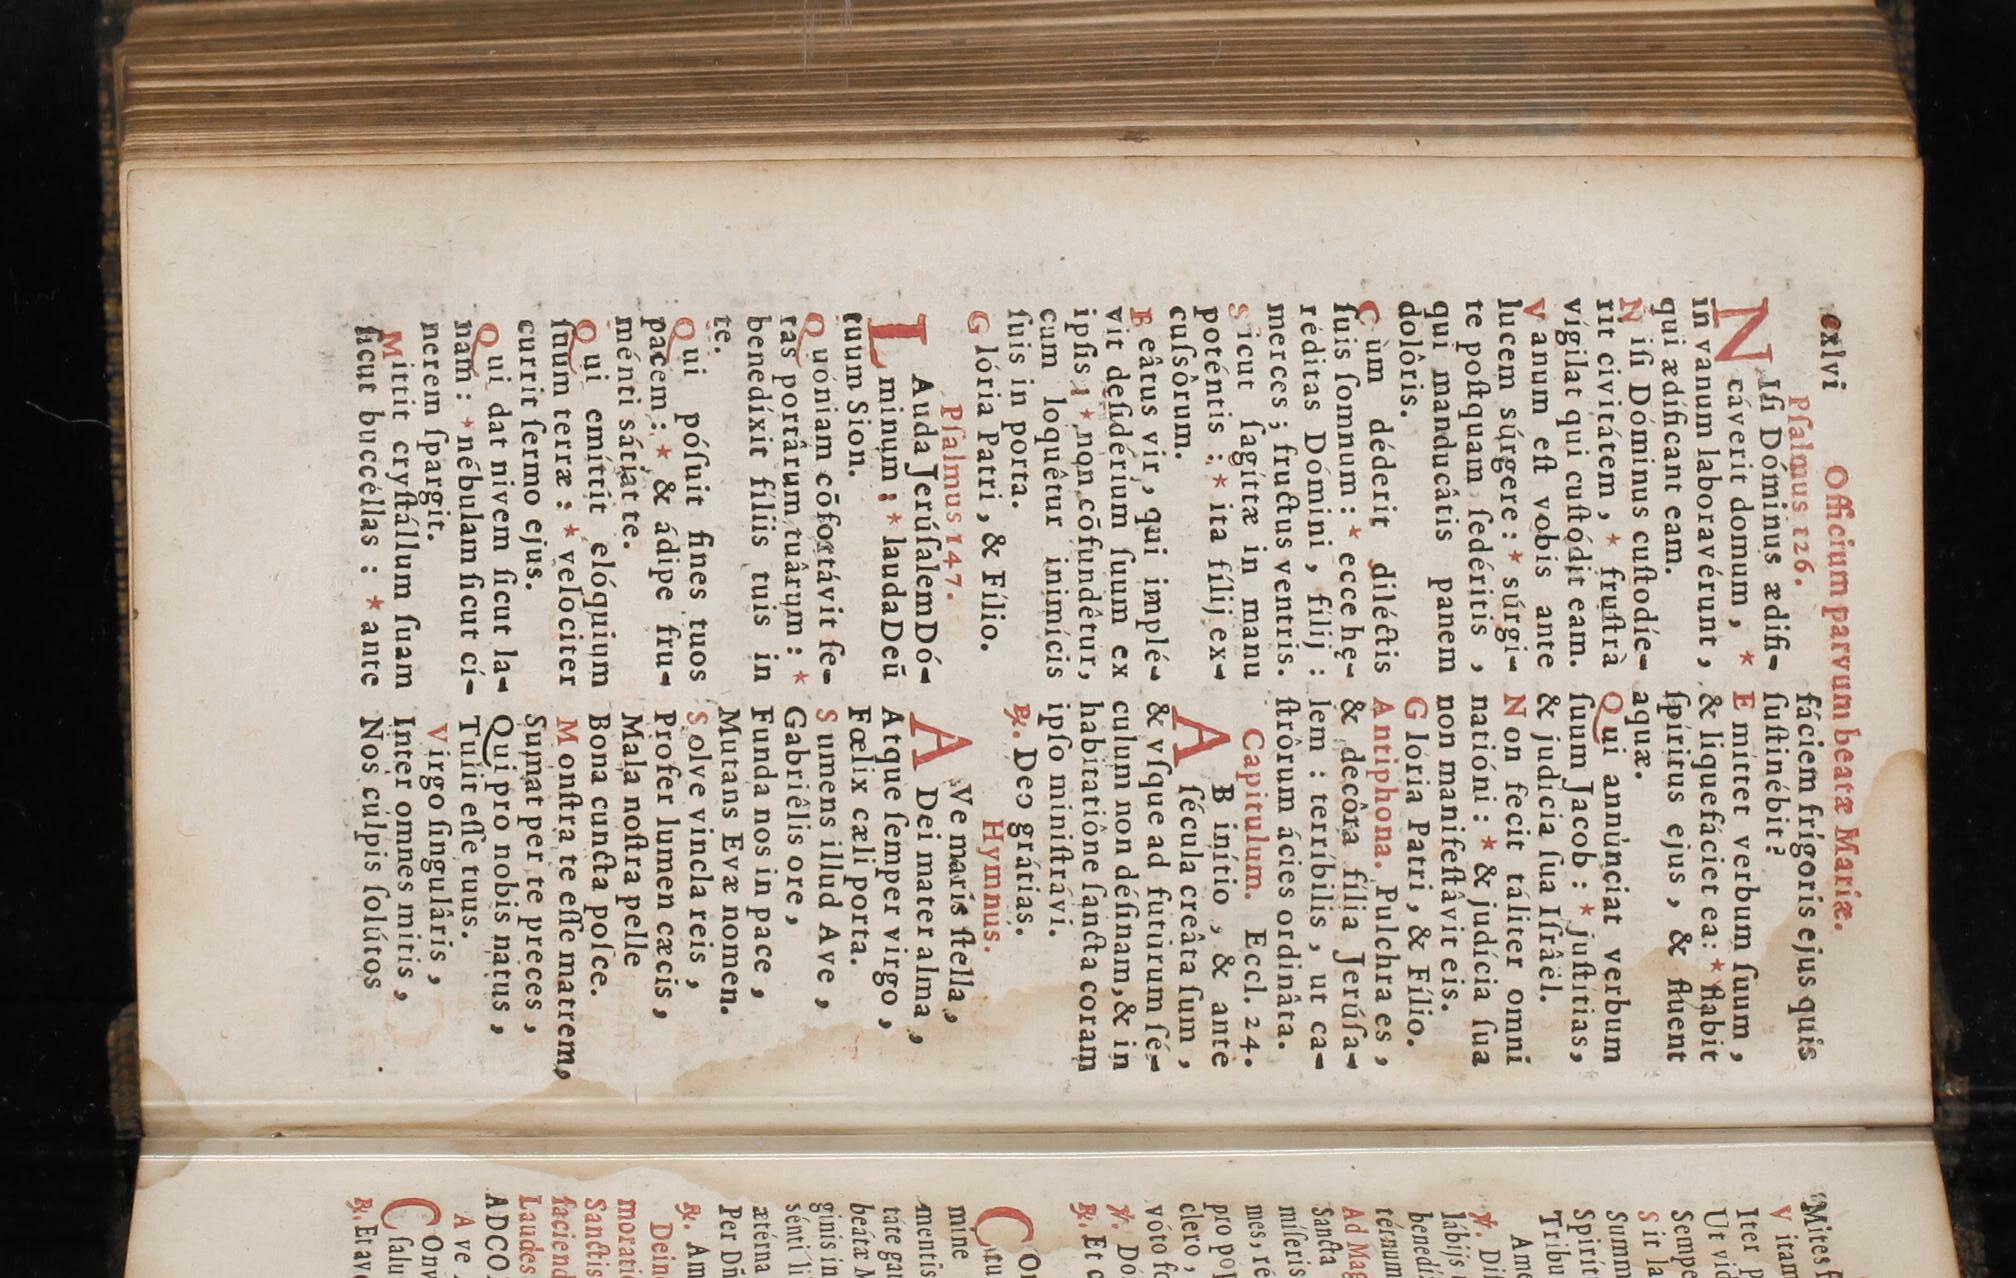 cxlvi
Officium parvum beatæ Mariæ.
Pſalmus 126.
NIſi Dóminus ædifi-
cáverit domum, *
in vanum laboravérunt,
qui ædíficant eam.
Niſi Dóminus cuſtodíe-
rit civitátem, * fruſtrà
vígilat qui cuſtódit eam.
Vanum eſt vobis ante
lucem súrgere : * súrgi-
te poſtquam ſedéritis,
qui manducâtis panem
dolôris.
Cùm déderit diléctis
ſuis ſomnum : * ecce hę-
réditas Dómini, filij :
merces ; fructus ventris.
Sicut ſagíttæ in manu
poténtis : * ita fílij ex-
cuſsôrum.
Beâtus vir, qui implé-
vit deſidérium ſuum ex
ipſis : * non cōfundêtur,
cum loquêtur inimícis
ſuis in porta.
Glória Patri, & Fílio.
Pſalmus 147.
LAuda Jerúſalem Dó-
minum : * lauda Deū
tuum Sion.
Quóniam cōfortávit ſe-
ras portârum tuârum : *
benedíxit fíliis tuis in
te.
Qui póſuit fines tuos
pacem : * & ádipe fru-
ménti sátiat te.
Qui emíttit elóquium
ſuum terræ : * velociter
currit ſermo ejus.
Qui dat nivem ſicut la-
nam : * nébulam ſicut cí-
nerem ſpargit.
Mittit cryſtállum ſuam
ſicut buccéllas : * ante
fáciem frígoris ejus quis
ſuſtinébit?
Emíttet verbum ſuum,
& liquefáciet ea: * flabit
ſpíritus ejus, & fluent
aquæ.
Qui annúnciat verbum
ſuum Jacob : * juſtítias,
& judícia ſua Iſrâël.
Non fecit táliter omni
natióni : * & judícia ſua
non manifeſtâvit eis.
Glória Patri, & Fílio.
Antiphona. Pulchra es,
& decôra fília Jerúſa-
lem : terríbilis, ut ca-
ſtrôrum ácies ordinâta.
Capitulum. Eccl. 24.
AB inítio, & ante
ſécula creâta ſum,
& vſque ad futúrum ſé-
culum non déſinam, & in
habitatiône ſancta coram
ipſo miniſtrávi.
℟. Deo grátias.
Hymnus.
AVe maris ſtella,
Dei mater alma,
Atque ſemper virgo,
Fœlix cæli porta.
Sumens illud Ave,
Gabriêlis ore,
Funda nos in pace,
Mutans Evæ nomen.
Solve vincla reis,
Profer lumen cæcis,
Mala noſtra pelle
Bona cuncta poſce.
Monſtra te eſſe matrem,
Sumat per te preces,
Qui pro nobis natus,
Tulit eſſe tuus.
Virgo ſingulâris,
Inter omnes mitis,
Nos culpis ſolútos
Mites
Vitam
Iter p
Ut vid
Sempe
Sit la
Summ
Spirit
Tribu
Ame
℣. Dif
lábijs
benedí
térnum
Ad Mag
Sancta
míſeris
mes, ré
pro pop
clero,
vóto fe
℣. Dó
℟. Et c
mine
mentis
táte gau
beátæ M
ginis in
sénti li
ætérna
Per Dñ
℟. Am
Dein
morati
Sanctis
faciend
Laudes
AD CO
Ave
COnv
ſalu
℟. Et av